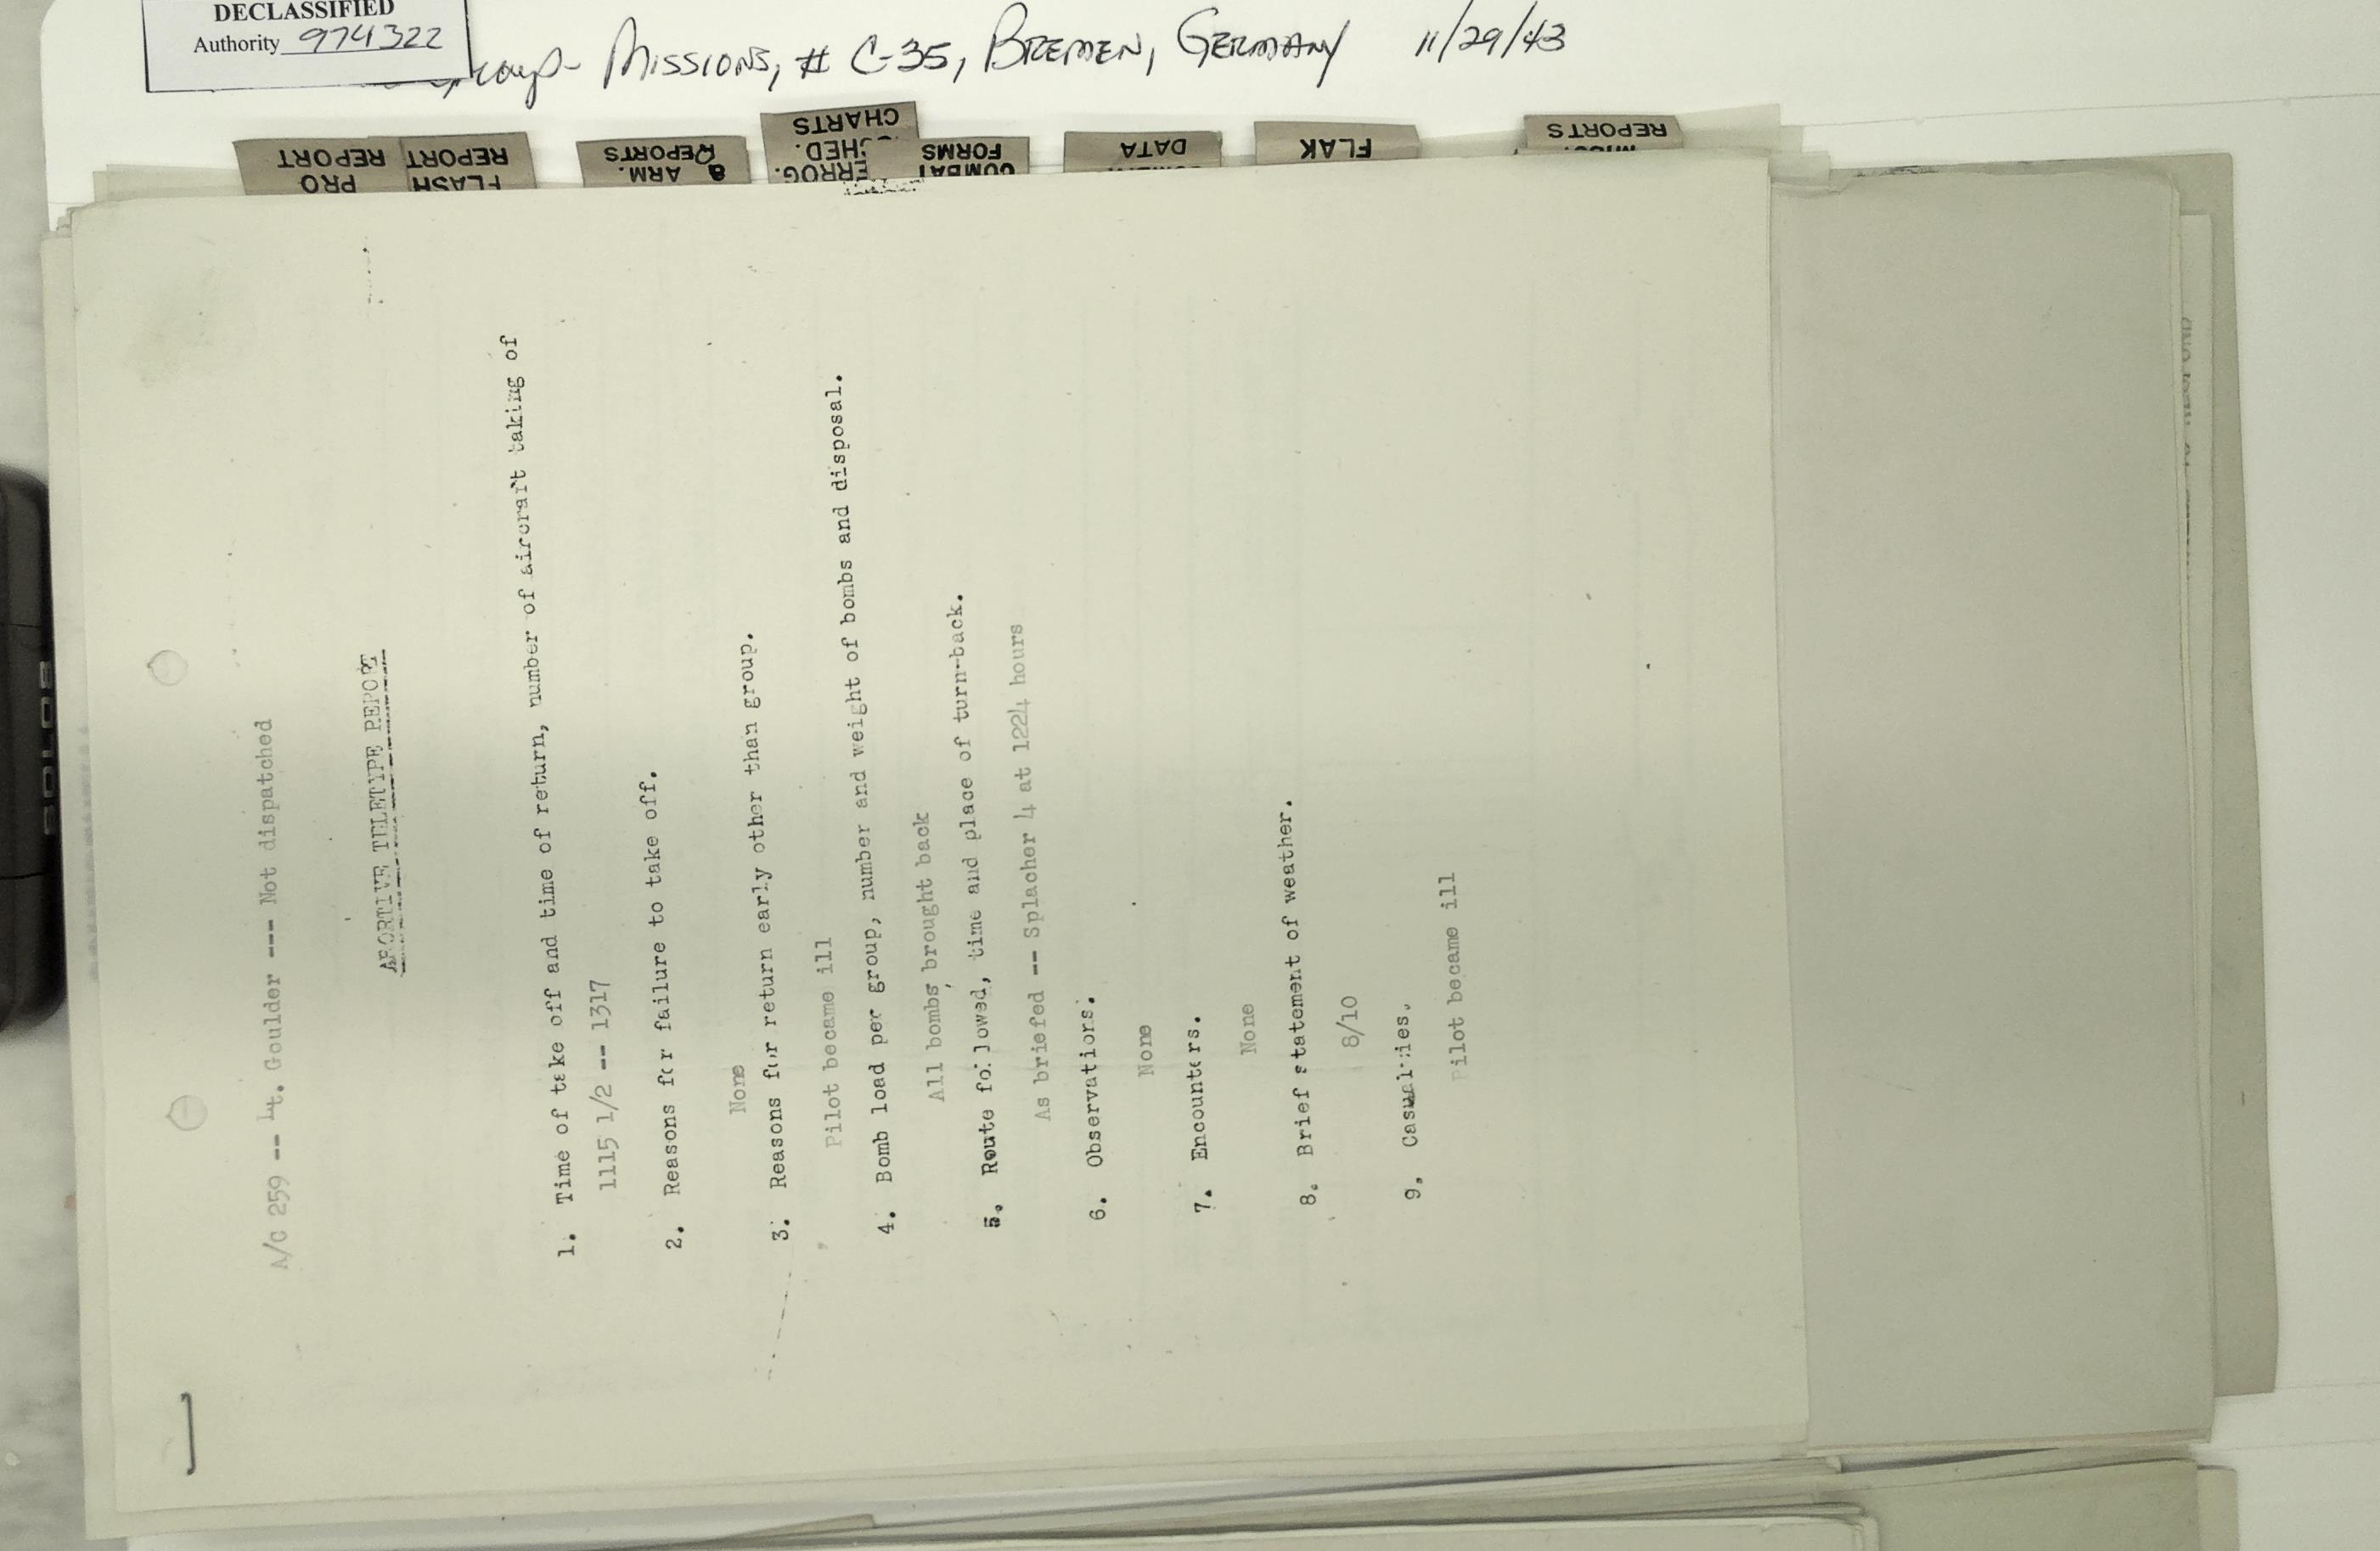 DECLASSIFIED
Authority 974322
Group- MISSIONS, # C-35, BREMEN, GERMANY 11/29/43
PRO
REPORT
FLASH
REPORT
ARM.
REPORTS
CHARTS
COMBAT
FORMS
DATA
FLAK
REPORTS
A/C 259 -- Lt. Goulder --- Not dispatched
ABORTIVE TELETYPE REPORT
1. Time of take off and time of return, number of aircraft taking of
1115 1/2 -- 1317
2. Reasons for failure to take off.
None
3. Reasons for return early other than group.
Pilot became ill
4. Bomb load per group, number and weight of bombs and disposal.
All bombs brought back
5. Route followed, time and place of turn-back.
As briefed -- Splacher 4 at 1224 hours
6. Observations.
None
7. Encounters.
None
8. Brief statement of weather.
8/10
9. Casualties.
Pilot became ill